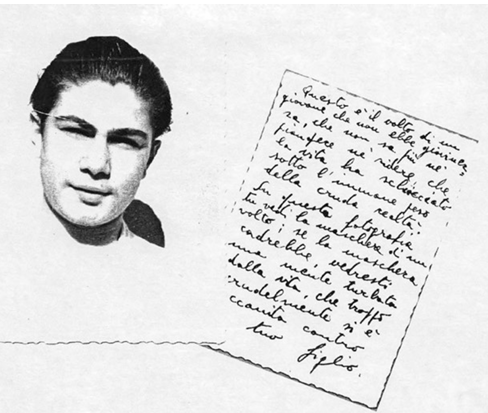 Questo è il volto di un
giovane che non ebbe giovinez
za, che non sa più nè
piangere nè ridere che
la vita ha schiacciato
sotto l'immane peso
della cruda realtà.
In questa fotografia
tu vedi la maschera di un
volto; se la maschera
cadrebbe, vedresti
una mente turbata
dalla vita, che troppo
crudelmente si è
accanita contro
tuo figlio.